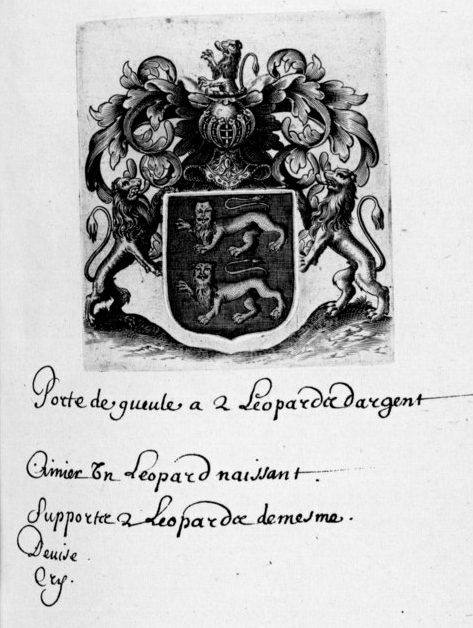 Porte de gueule a 2 Leopardz dargent
Cimier Un Leopard naissant.
Supportz 2 Leopardz de mesme.
Devise.
Cry.